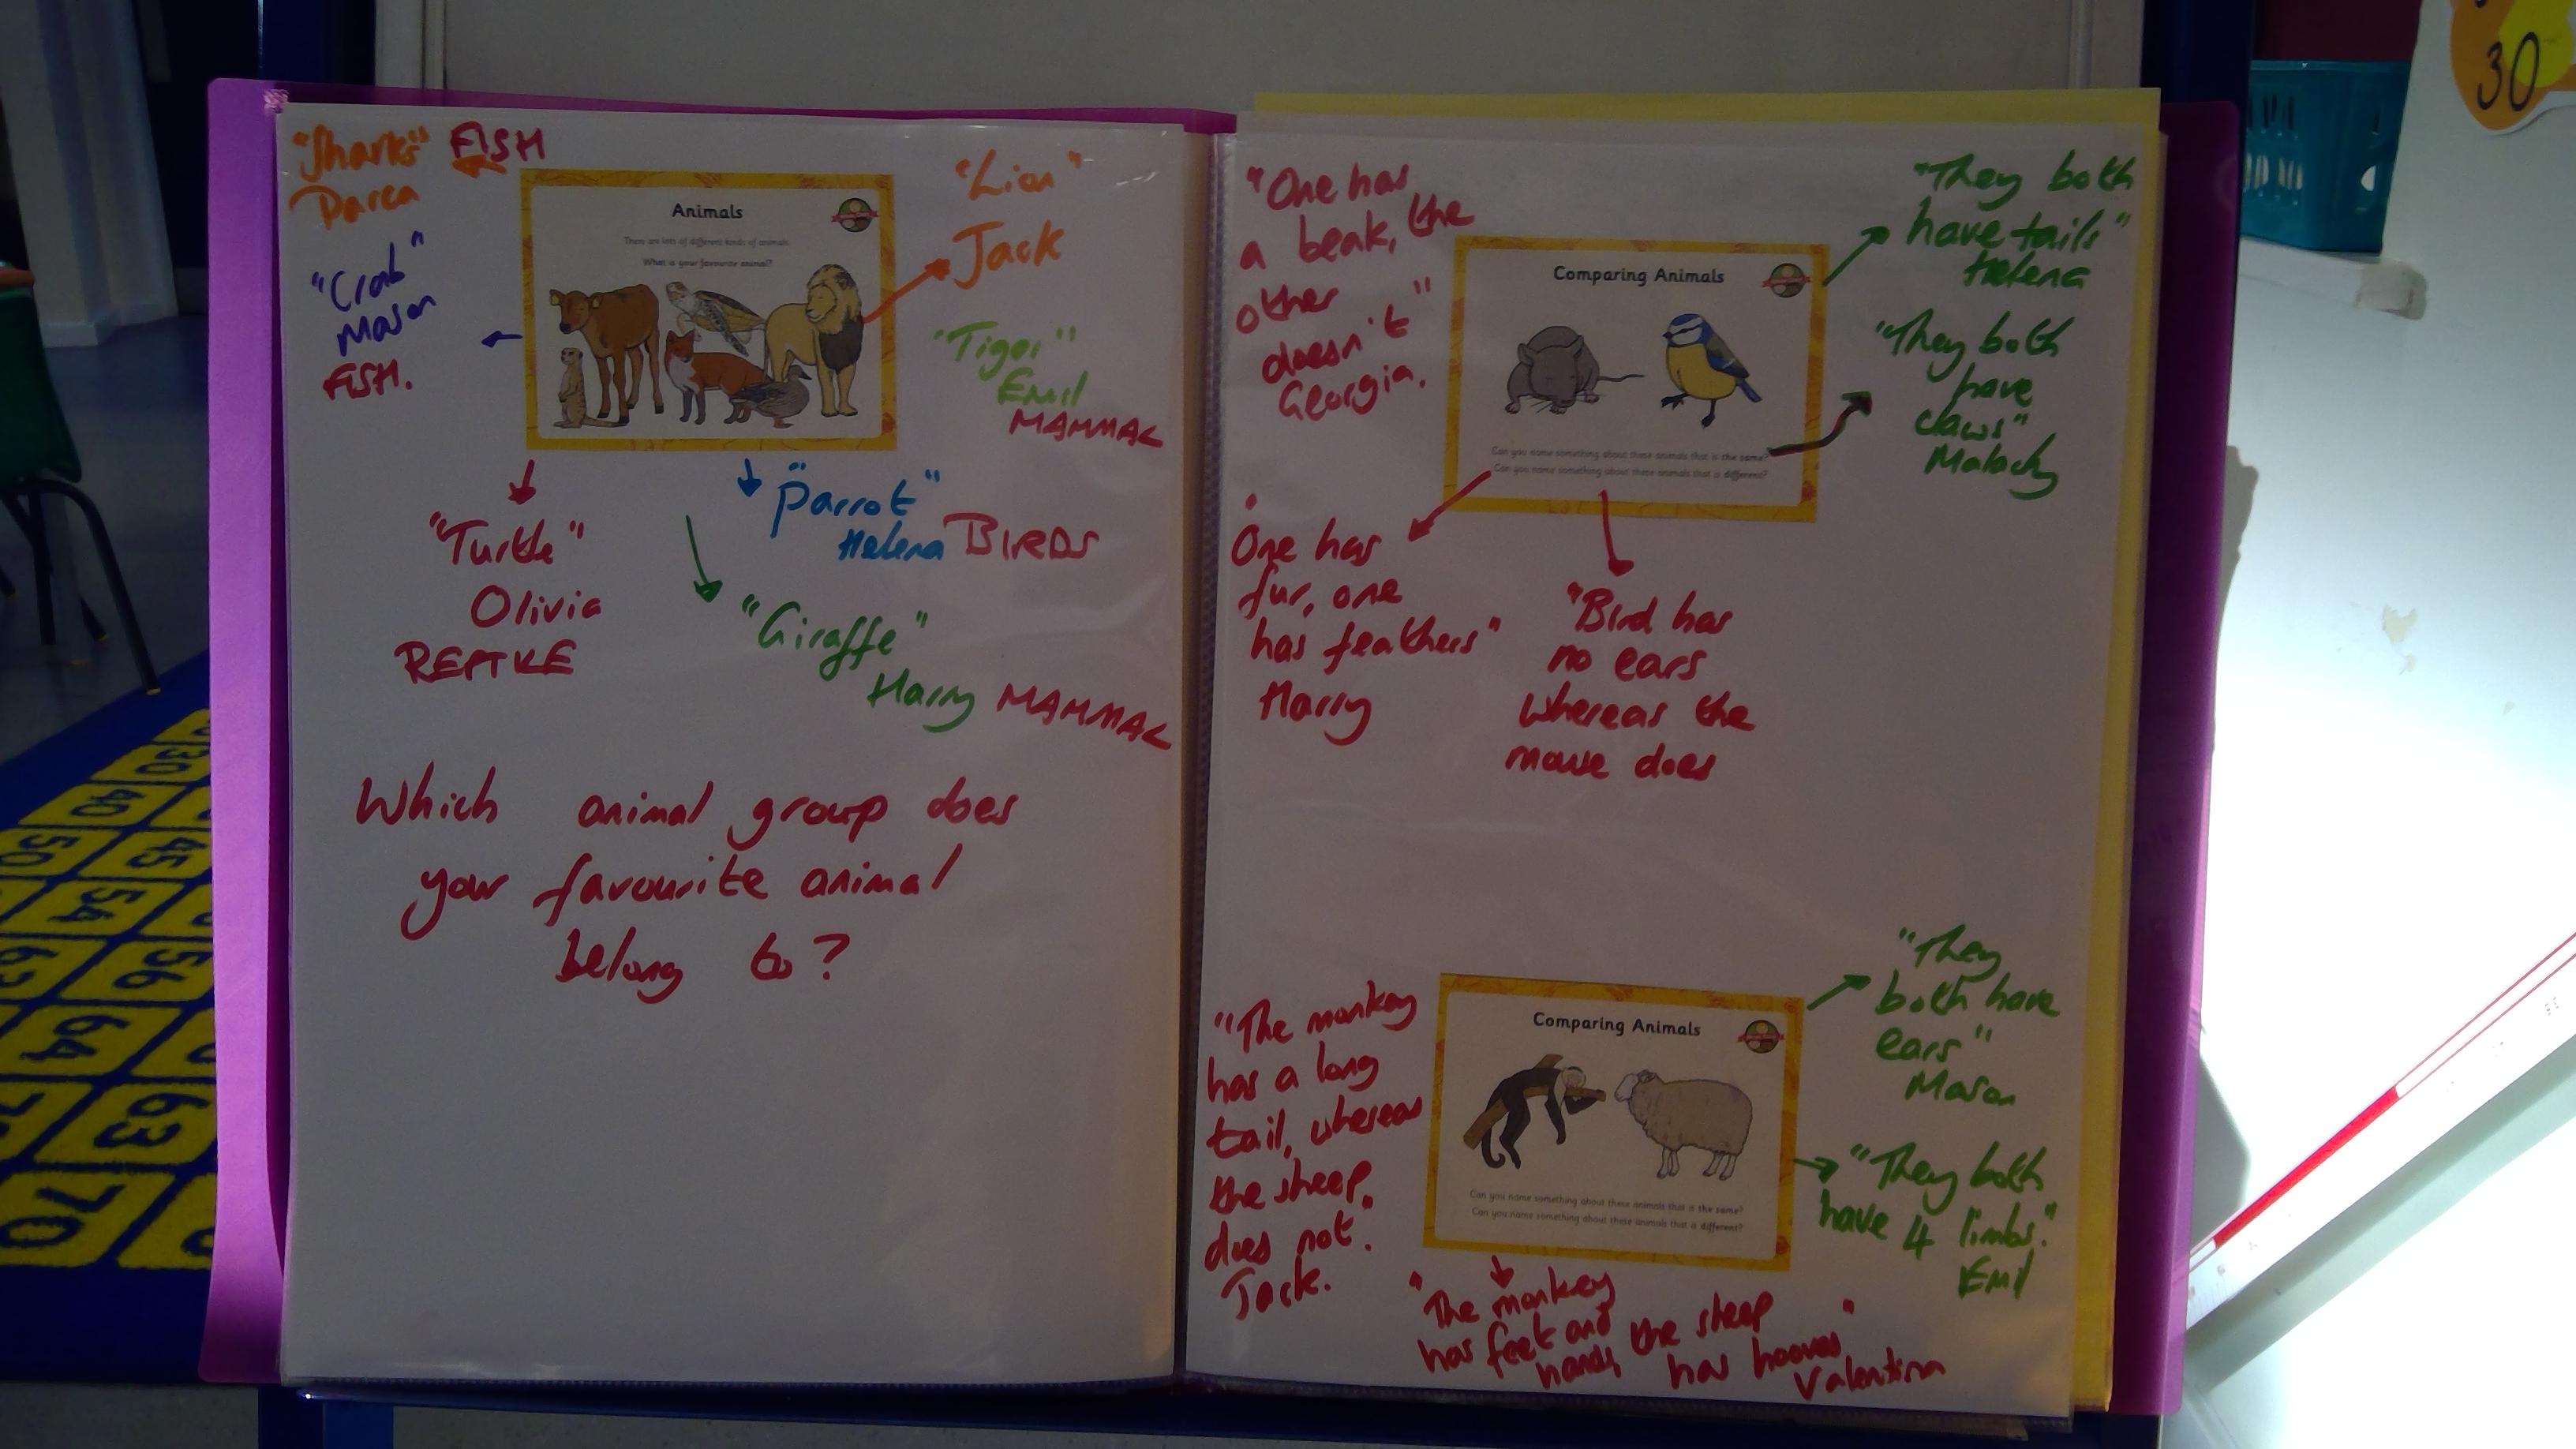 "Sharks" FISH
Darca
"Crab"
Mason
FISH.
Animals
There are lots of different kinds of animals.
What is your favourite animal?
"Lion"
Jack
"Tiger"
Emil
MAMMAL
"Turtle"
Olivia
REPTILE
"Parrot"
Helena BIRDS
"Giraffe"
Harry MAMMAL
Which animal group does
your favourite animal
belong to?
"One has
a beak, the
other
doesn't"
Georgia.
Comparing Animals
Can you name something about these animals that is the same?
Can you name something about these animals that is different?
"They both
have tails"
Helena
"They both
have
claws"
Malachy
"One has
fur, one
has feathers"
Harry
"Bird has
no ears
whereas the
mouse does
"The monkey
has a long
tail, whereas
the sheep
does not".
Jack.
Comparing Animals
Can you name something about these animals that is the same?
Can you name something about these animals that is different?
"They
both have
ears"
Mason
"They both
have 4 limbs."
Emil
"The monkey
has feet and
hands the sheep
has hooves"
Valentina
30
30
40
45
50
54
56
63
64
63
70